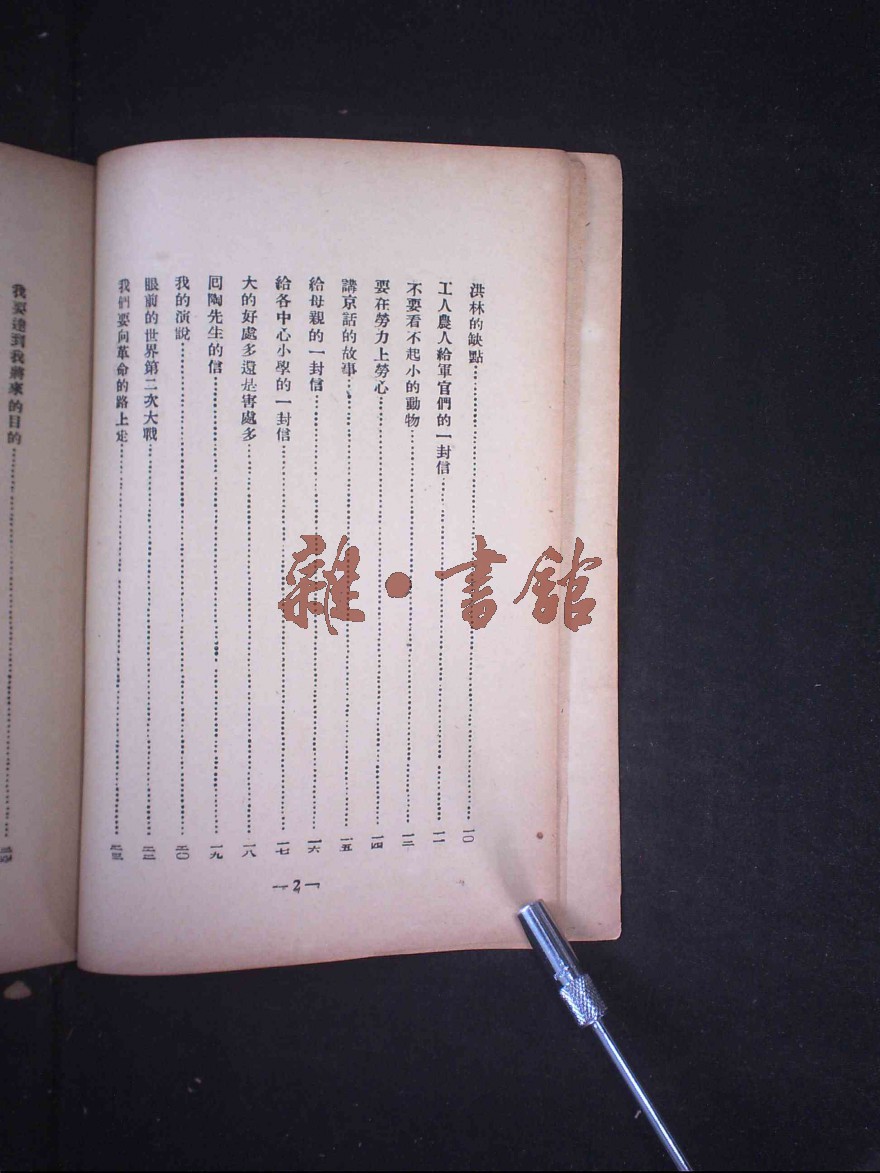 洪林的缺點……一〇
工人農人給軍官們的一封信……一一
不要看不起小的動物……一三
要在勞力上勞心……一四
講京話的故事……一五
給母親的一封信……一六
給各中心小學的一封信……一七
大的好處多還是害處多……一八
囘陶先生的信……一九
我的演說……二〇
眼前的世界第二次大戰……二二
我們要向革命的路上走……二三
—2—
我要達到我將來的目的……
雜·書館